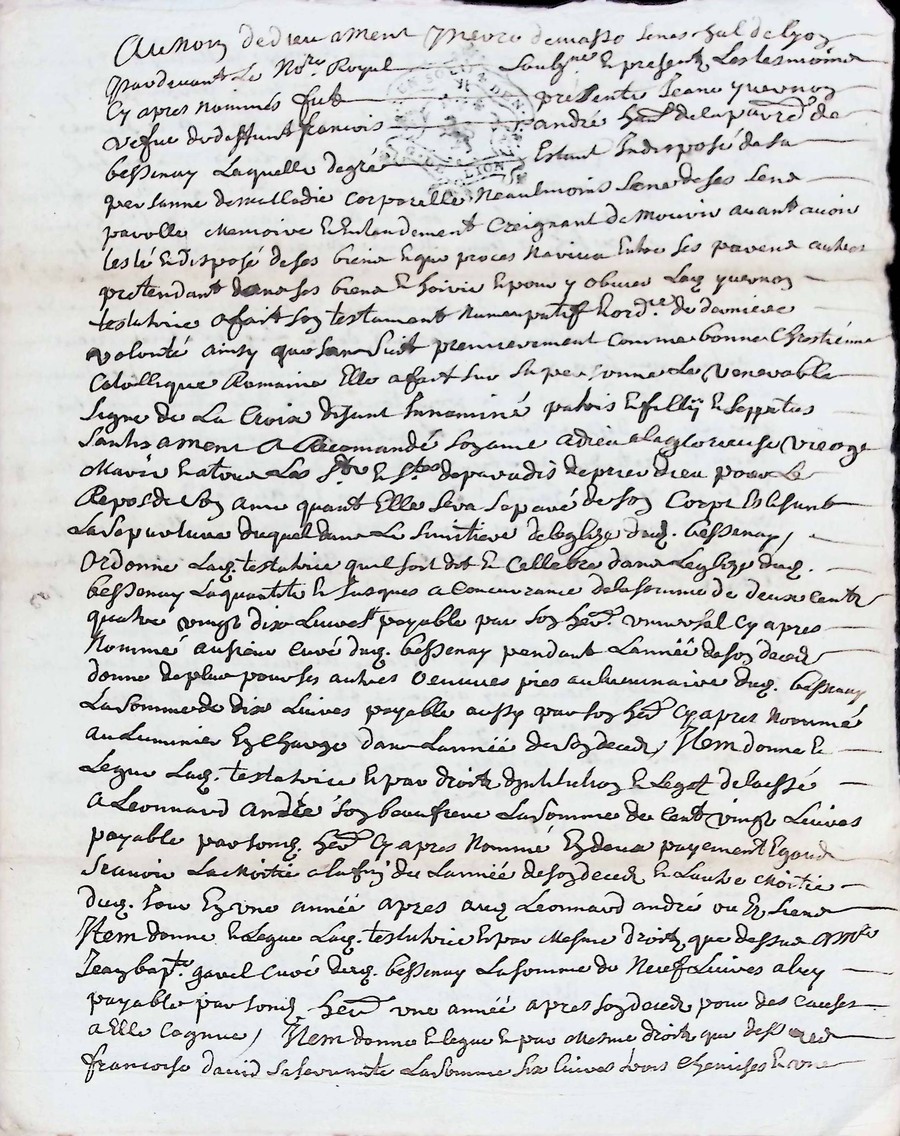 Au Nom de dieu ament senes hal de lyon
Pardevant Le Nore Royal Soubzne En presence Les tesmoins
Cy apres nommés fut presente Jeane yvernon
vefve de deffunt francois andré de la parre de
bessenay Laquelle de gré Estant Indisposé de sa
personne de malladie corporelle Neaulmoins Sene de ses Sens
parolle memoire Et Entendement Creignant de Mourir avant avoir
testé Et disposé de ses biens Et que proces Naviene Entre ses parens autres
pretendant dans ses biens Et hoirie Et pour y obvier Lad. yvernon
testatrice a fait Son testament Noncupatif Et ordre de derniere
volonté ainsy que Sen Suit premierement Comme bonne Chrestiene
Catollique Romaine Elle a fait sur Sa personne Le Venerable
Signe de La Croix disant Innominé patris Et filly Et Speritus
Santis ament A Recomandé Son ame a dieu a la glorieuse vierge
Marie Et a tous Les Sts Et Stes de paradis de prier dieu pour Le
Repos de Son ame quant Elle Sera separé de Son Corps Elisant
La Sepulture duquel dans Le Simitiere de leglize dud. bessenay /
Ordonne Lad. testatrice quil soit dit Et Cellebre dans Leglize dud.
bessenay La quantité Et Jusques a concurance de la somme de deux cents
quatre vingt dix Livres payable par Son her. universal Cy apres
Nommé au sieur Curé dud. bessenay pendant Lannée de son deceds
donne de plus pour ses autres Oeuvres pies au luminaire dud. bessenay
La Somme de dix Livres payable aussy par Son her. Cy apres Nommé
au Luminier En charge dans Lannée de Son deceds / Item donne Et
Legue Lad. testatrice Et par droit dinstitution Et Legat delaissé
A Leonnard André Son beaufrere La Somme de Cent vingt Livres
payable par Sond. her. Cy apres Nommé En deux payement Egaux
Scavoir La Moitié a la fin de Lannée de Son deceds Et Lautre Moitié
dud. Jour En une année apres aud. Leonnard andré ou Es Siens
Item donne Et Legue Lad. testatrice Et par Mesme droit que dessus a Mre
Jean bapte. gavel Curé dud. bessenay La Somme de Neuf Livres a luy
payable par Sond. her. une année apres Son deceds pour des causes
a Elle Cognue / Item donne Et legue Et par Mesme droit que dessus
francoise david Sa Servante La Somme Six livres trois Chemises Et une